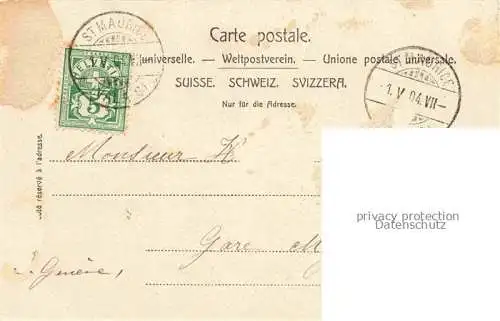 ST MAURICE
Carte postale.
universelle. — Weltpostverein. — Unione postale universale.
SUISSE. SCHWEIZ. SVIZZERA.
Nur für die Adresse.
5
1. V 04. VII–
Monsieur H
réservé à l'adresse.
privacy protection
Datenschutz
Gare M
Genève,